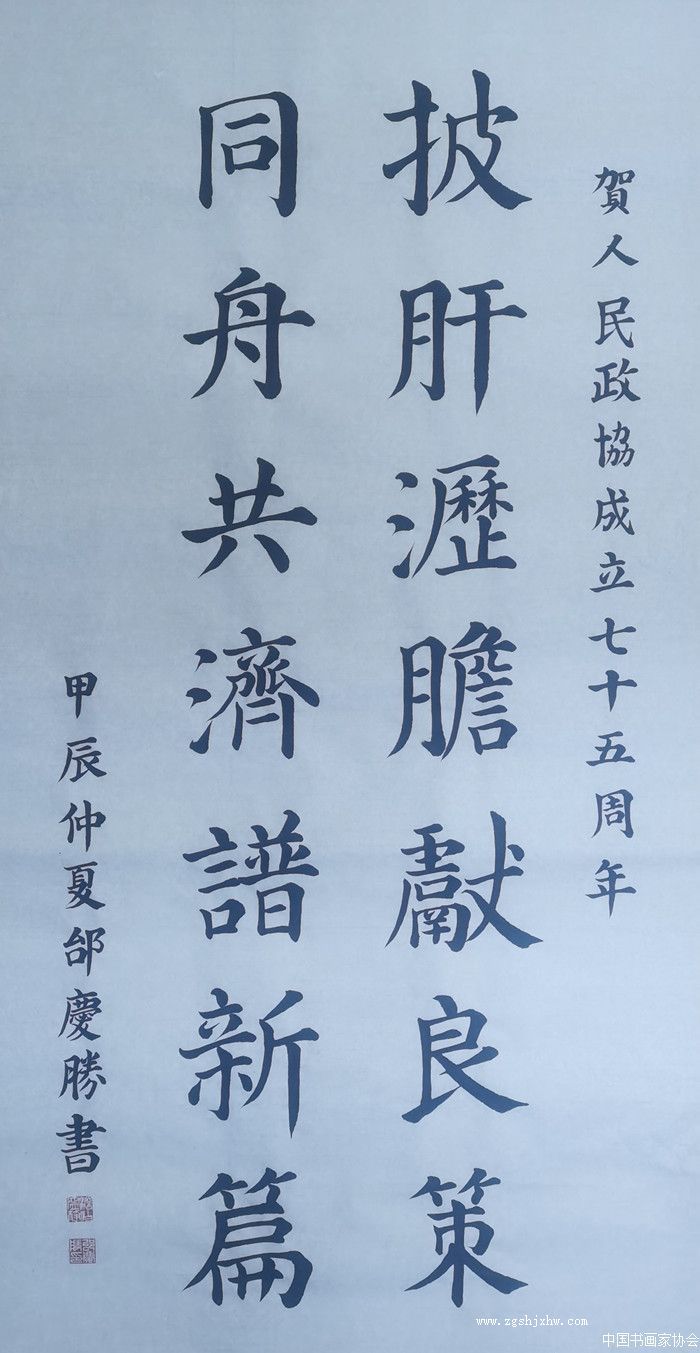 賀人民政協成立七十五周年
披肝瀝膽獻良策
同舟共濟譜新篇
甲辰仲夏邰慶勝書
www.zgshjxhw.com
中国书画家协会